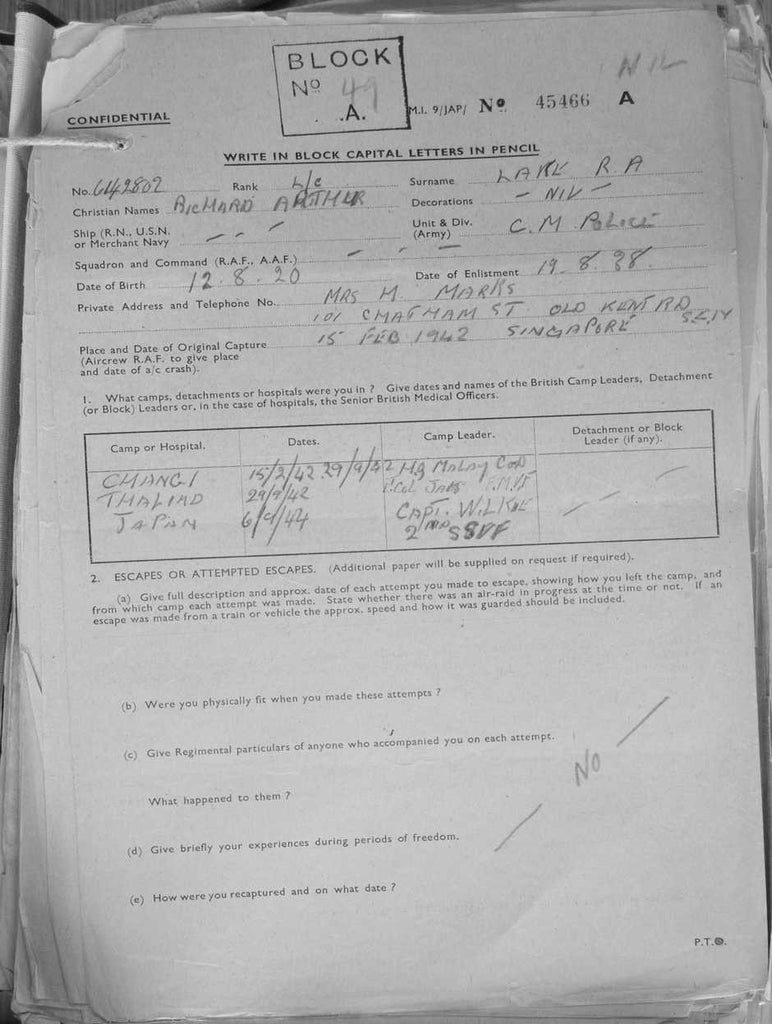 BLOCK
Nº 49
.A.
NIL
CONFIDENTIAL
M.I. 9/JAP/ Nº 45466 A
WRITE IN BLOCK CAPITAL LETTERS IN PENCIL
No. 642802 Rank L/C Surname LAKE R A
Christian Names RICHARD ARTHUR Decorations - NIL -
Ship (R.N., U.S.N. or Merchant Navy - - - Unit & Div. (Army) C. M. POLICE
Squadron and Command (R.A.F., A.A.F.) - - -
Date of Birth 12.8.20 Date of Enlistment 19.8.38.
Private Address and Telephone No. MRS M. MARKS
101 CHATHAM ST. OLD KENT RD S.E.17
Place and Date of Original Capture 15 FEB 1942 SINGAPORE
(Aircrew R.A.F. to give place
and date of a/c crash).
1. What camps, detachments or hospitals were you in ? Give dates and names of the British Camp Leaders, Detachment
(or Block) Leaders or, in the case of hospitals, the Senior British Medical Officers.
Camp or Hospital. Dates. Camp Leader. Detachment or Block Leader (if any).
CHANGI 15/2/42 29/9/42 HQ MALAY COD
THALIND 29/9/42
JAPAN 6/9/44 CAPT. WILKIE
2ND SSVF
2. ESCAPES OR ATTEMPTED ESCAPES. (Additional paper will be supplied on request if required).
(a) Give full description and approx. date of each attempt you made to escape, showing how you left the camp, and
from which camp each attempt was made. State whether there was an air-raid in progress at the time or not. If an
escape was made from a train or vehicle the approx. speed and how it was guarded should be included.
(b) Were you physically fit when you made these attempts ?
(c) Give Regimental particulars of anyone who accompanied you on each attempt.
NO
What happened to them ?
(d) Give briefly your experiences during periods of freedom.
(e) How were you recaptured and on what date ?
P.T.O.